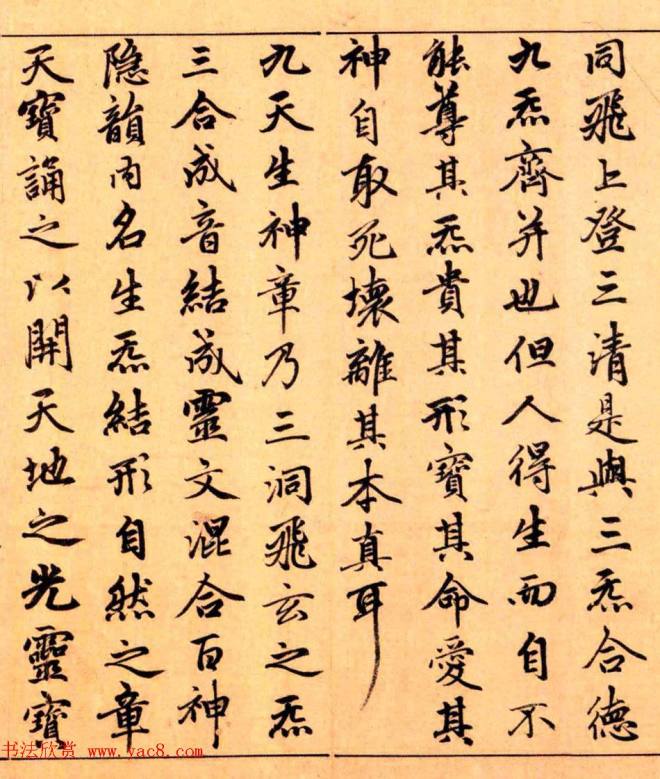 同飛上登三清是與三炁合德
九炁齊并也但人得生而自不
能尊其炁貴其形寶其命愛其
神自取死壞離其本真耳
九天生神章乃三洞飛玄之炁
三合成音結成靈文混合百神
隱韻内名生炁結形自然之章
天寶誦之以開天地之光靈寶
书法欣赏 www.yac8.com